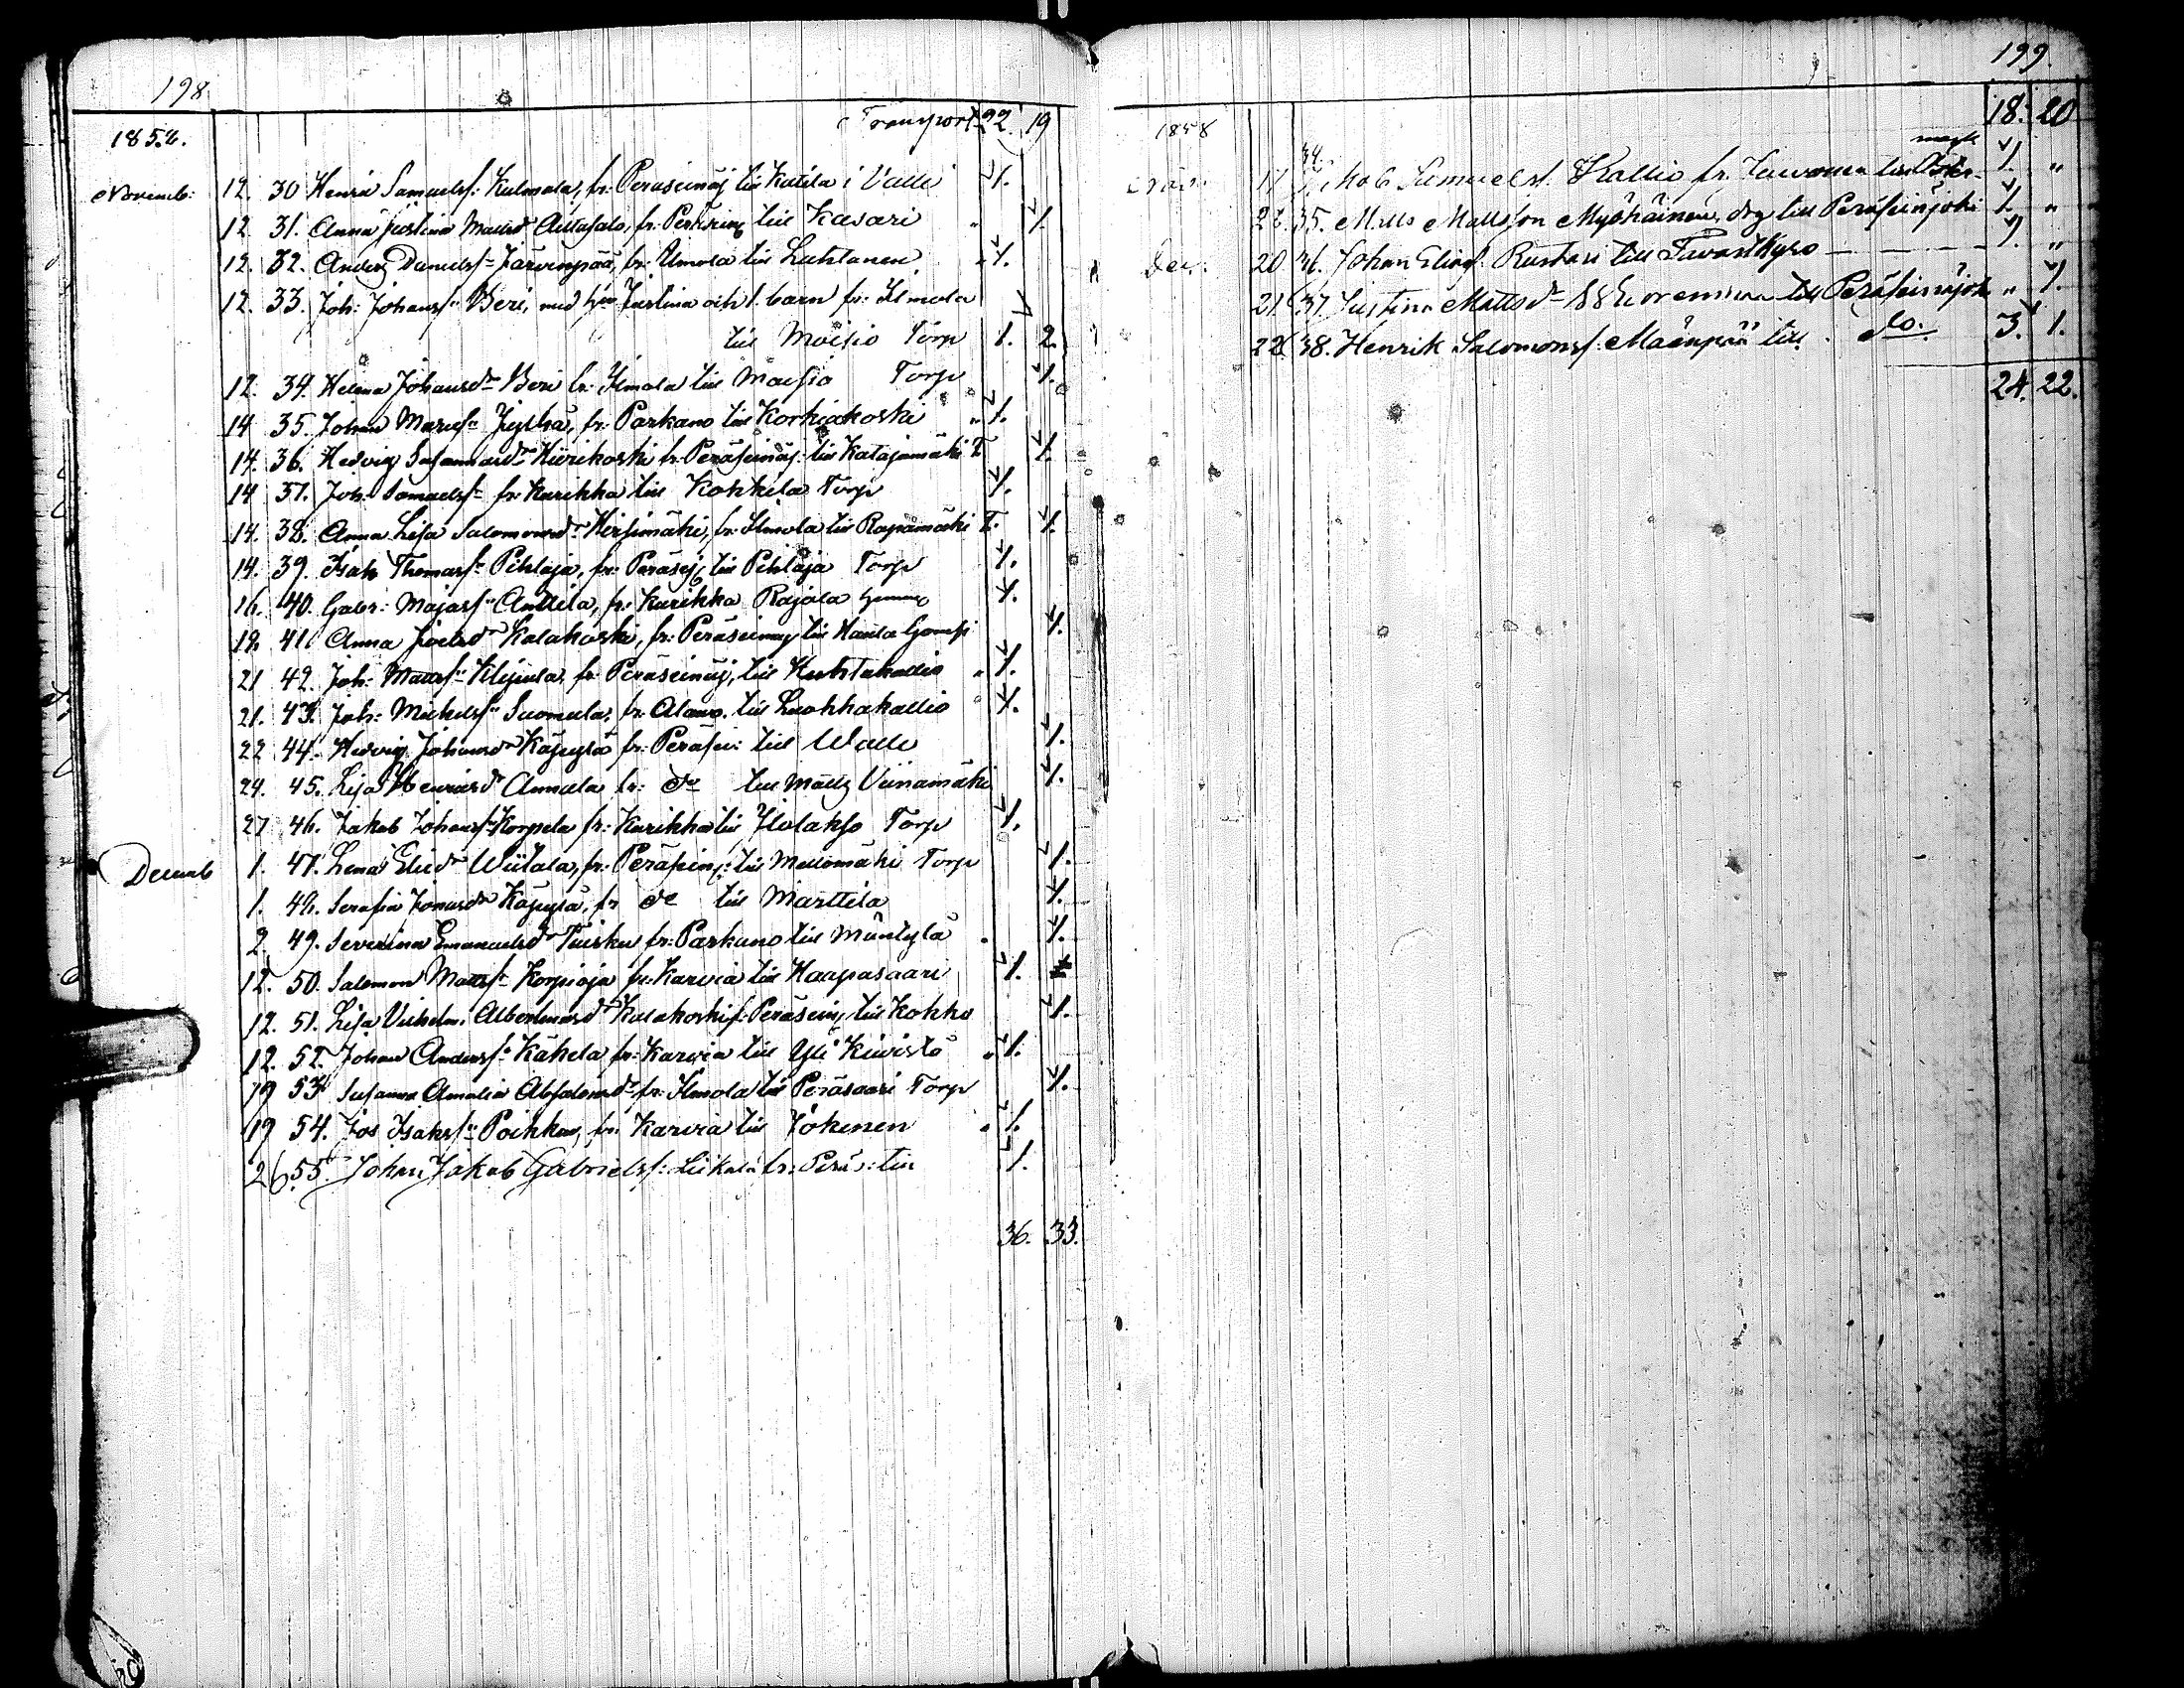 198
Transport 22 19
1858.
Novemb: 12. 30 Henric Samuelsf: Kulmala, fr: Peräseinäj till Katila i Valli 1.
12 31. Anna Justina Maths dr Aittasalo, fr. Peräseinj till Kasari " 1.
12. 32. Anders Danielsf Järvenpää, fr: Ilmola till Luhtanen " 1.
12. 33. Joh: Johansf: Beri, med h:u Justina och 1. barn fr: Ilmola
till Moisio Torp 1. 2.
12. 34. Helena Johansdr Beri fr: Ilmola till Moisio Torp 1.
14 35. Johan Mariesf fr: Parkano till Korhiakoski " 1.
14. 36. Hedvig Susannasdr Hiirikoski fr: Peräseinäj: till Katajamäki T 1.
14 37. Joh: Samuelsf fr: Kurikka till Kokkila Torp 1.
14. 38. Anna Lisa Salomonsdr Hirsimäki, fr: Ilmola till Rapamäki T. 1.
14. 39. Isak Thomasf Pihlaja, fr: Peräsej, till Pihlaja Torp 1.
16. 40. Gabr: Majasf Anttila, fr: Kurikka Rajala 1.
19. 41. Anna Joelsdr Kalakoski, fr: Peräseinäj till Hanla 1.
21 42. Joh: Mattsf fr: Peräseinäj, till Huhtakallio " 1.
21. 43. Joh: Michelsf Suomela, fr: Alavo. till Luohkakallio " 1.
22 44. Hedvig Johansdr Käpylä fr: Peräsei: till Walli 1.
24. 45. Lisa Henricsdr Annala fr: do till Mätts Viinamäki 1.
27 46. Jakob Johansf Korpela fr: Kurikka till Ilolakso Torp 1.
Decemb 1. 47. Lena Eliedr Wiitala, fr: Peräseinj: till Mellomäki Torp 1.
1. 48. Serafia Jonasdr Käpylä, fr do till Marttila 1.
2. 49. Severina Emanuelsdr Tuisku fr: Parkano till Mäntylä " 1.
12. 50. Salomon Mattsf Korpioja fr: Karvia till Haapasaari 1.
12. 51. Lisa Vilhelm: Albertinasdr Kalakoski f: Peräseinj till Kokko 1.
12. 52. Johan Andersf: Kähelä fr: Karvia till Yli Kivistö " 1.
19 53. Susanna Amalia Absalonsdr fr: Ilmola till Peräsaari Torp 1.
19 54. Jos Isaksf: Poikkeus, fr: Karvia till Jokinen " 1.
26 55. Johan Jakob Gabrielsf: fr: Peräs: till 1.
36. 33.
199.
18. 20
1858
Nov. 17 34. Jakob Samuelsf. Kallio fr. 1. "
35. Matts Mattsson Myöhäinen, drg till Peräseinjoki 1. "
Dec. 20 36. Johan Eliasf. Rustari till Tavastkyro 1. "
21. 37. Justina Mattsdr till Peräseinäjok " 1.
22. 38. Henrik Salomonsf: Mäenpää till do. 3. 1.
24. 22.